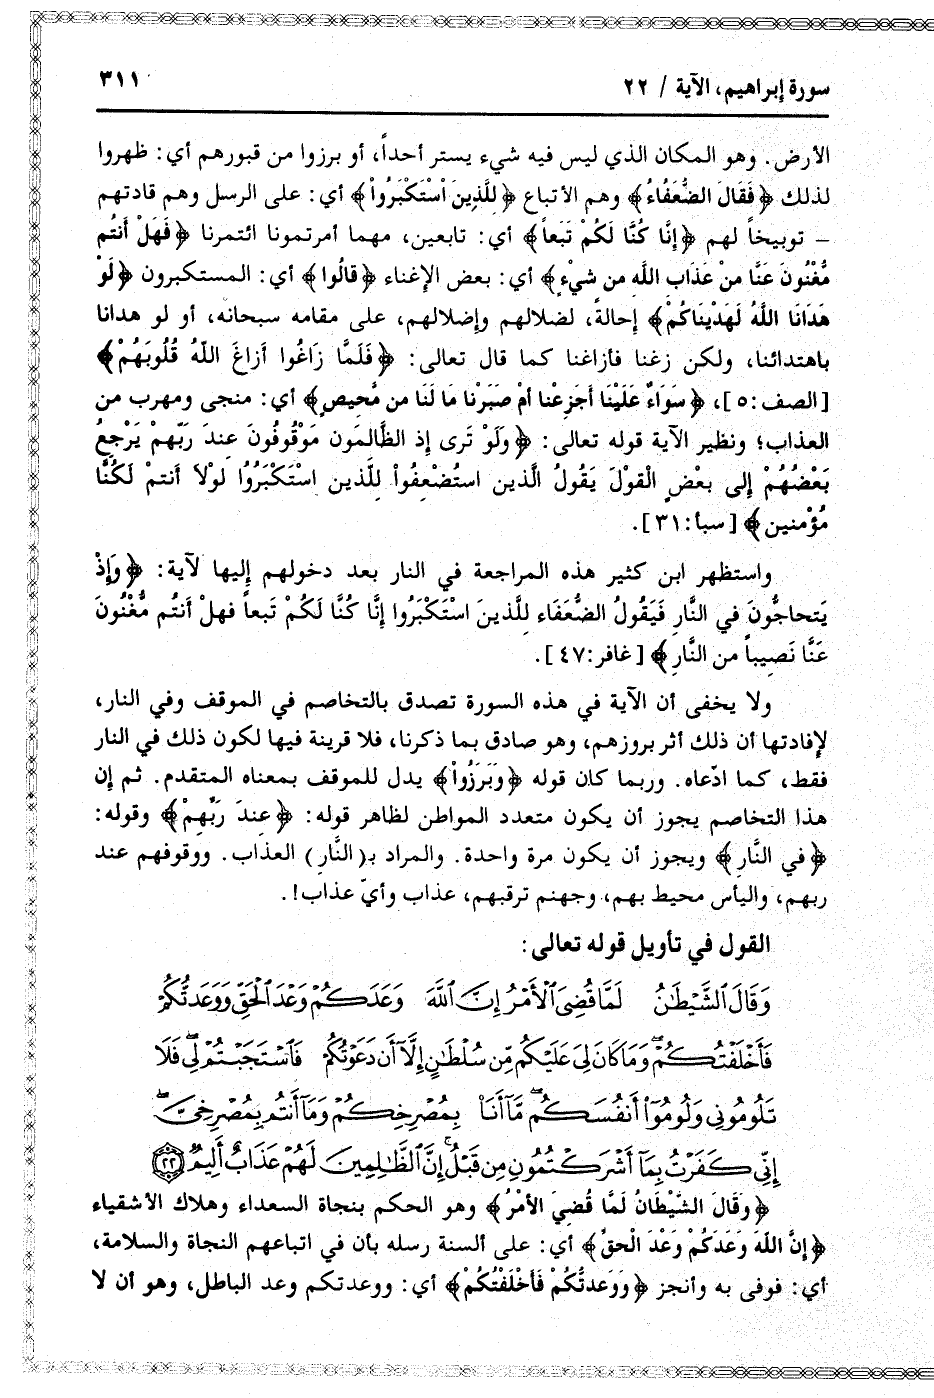 سورة إبراهيم، الآية / ٢٢
٣١١
الأرض. وهو المكان الذي ليس فيه شيء يستر أحداً، أو برزوا من قبورهم أي: ظهروا
لذلك ﴿فَقَالَ الضُّعَفَاءُ﴾ وهم الأتباع ﴿لِلَّذِينَ اسْتَكْبَرُواْ﴾ أي: على الرسل وهم قادتهم
– توبيخاً لهم ﴿إِنَّا كُنَّا لَكُمْ تَبَعاً﴾ أي: تابعين، مهما أمرتمونا ائتمرنا ﴿فَهَلْ أَنتُم
مُّغْنُونَ عَنَّا مِنْ عَذَابِ اللَّه مِن شَيْءٍ﴾ أي: بعض الإغناء ﴿قالُوا﴾ أي: المستكبرون ﴿لَوْ
هَدَانَا اللَّهُ لَهَدَيْنَاكُمْ﴾ إحالةً، لضلالهم وإضلالهم، على مقامه سبحانه، أو لو هدانا
باهتدائنا، ولكن زغنا فأزاغنا كما قال تعالى: ﴿فَلَمَّا زَاغُوا أَزَاغَ اللَّهُ قُلُوبَهُمْ﴾
[الصف:٥]، ﴿سَوَاءٌ عَلَيْنَا أَجَزِعْنا أَمْ صَبَرْنا مَا لَنَا مِن مَّحِيصٍ﴾ أي: منجى ومهرب من
العذاب؛ ونظير الآية قوله تعالى: ﴿وَلَوْ تَرى إِذِ الظَّالِمُونَ مَوْقُوفُونَ عِندَ رَبِّهِمْ يَرْجِعُ
بَعْضُهُمْ إِلى بَعْضٍ الْقَوْلَ يَقُولُ الَّذِينَ استُضْعِفُواْ لِلَّذِينَ اسْتَكْبَرُوُا لَوْلاَ أَنتمْ لَكُنَّا
مُؤْمِنين﴾ [سبأ:٣١].
واستظهر ابن كثير هذه المراجعة في النار بعد دخولهم إليها لآية: ﴿وَإِذْ
يَتحاجُّونَ في النَّارِ فَيَقُولُ الضُّعَفَاء لِلَّذينَ اسْتَكْبَرُوا إِنَّا كُنَّا لَكُمْ تَبعاً فهلْ أَنتُم مُّغْنُونَ
عَنَّا نَصِيباً من النَّارِ﴾ [غافر:٤٧].
ولا يخفى أن الآية في هذه السورة تصدق بالتخاصم في الموقف وفي النار،
لإفادتها أن ذلك أثر بروزهم، وهو صادق بما ذكرنا، فلا قرينة فيها لكون ذلك في النار
فقط، كما ادّعاه. وربما كان قوله ﴿وَبَرَزُواْ﴾ يدل للموقف بمعناه المتقدم. ثم إن
هذا التخاصم يجوز أن يكون متعدد المواطن لظاهر قوله: ﴿عِندَ رَبِّهِمْ﴾ وقوله:
﴿في النَّارِ﴾ ويجوز أن يكون مرة واحدة. والمراد بـ(النَّارِ) العذاب. ووقوفهم عند
ربهم، واليأس محيط بهم، وجهنم ترقبهم، عذاب وأيّ عذاب!.
القول في تأويل قوله تعالى:
وَقَالَ ٱلشَّيْطَٰنُ لَمَّا قُضِىَ ٱلْأَمْرُ إِنَّ ٱللَّهَ وَعَدَكُمْ وَعْدَ ٱلْحَقِّ وَوَعَدتُّكُمْ
فَأَخْلَفْتُكُمْ ۖ وَمَا كَانَ لِىَ عَلَيْكُم مِّن سُلْطَٰنٍ إِلَّآ أَن دَعَوْتُكُمْ فَٱسْتَجَبْتُمْ لِى ۖ فَلَا
تَلُومُونِى وَلُومُوٓا۟ أَنفُسَكُم ۖ مَّآ أَنَا۠ بِمُصْرِخِكُمْ وَمَآ أَنتُم بِمُصْرِخِىَّ ۖ
إِنِّى كَفَرْتُ بِمَآ أَشْرَكْتُمُونِ مِن قَبْلُ ۗ إِنَّ ٱلظَّٰلِمِينَ لَهُمْ عَذَابٌ أَلِيمٌ ﴿٢٢﴾
﴿وَقَالَ الشَّيْطَانُ لَمَّا قُضِيَ الأَمْرُ﴾ وهو الحكم بنجاة السعداء وهلاك الأشقياء
﴿إِنَّ اللَّهَ وَعَدَكُمْ وَعْدَ الْحَقِّ﴾ أي: على ألسنة رسله بأن في اتباعهم النجاة والسلامة،
أي: فوفى به وأنجز ﴿وَوَعَدتُّكُمْ فَأَخْلَفْتُكُمْ﴾ أي: ووعدتكم وعد الباطل، وهو أن لا